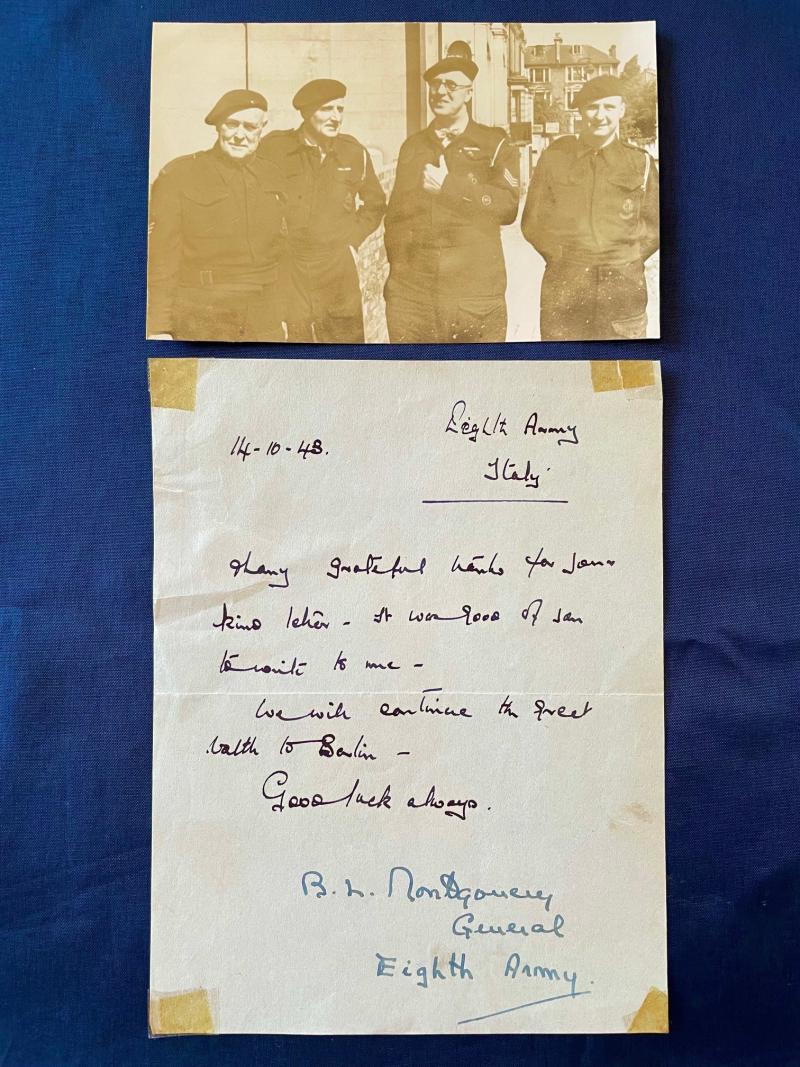 Eighth Army
14-10-43.
Italy.
Many grateful thanks for your
kind letter - it was good of you
to write to me -
We will continue the great
battle to Berlin -
Good luck always.
B. L. Montgomery
General
Eighth Army.